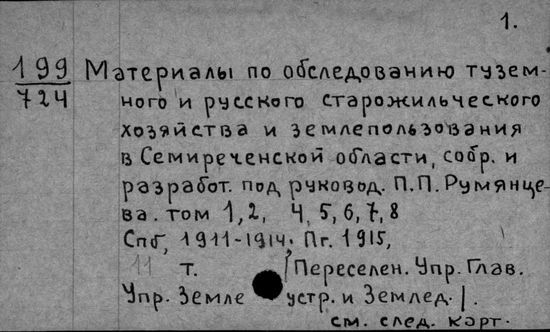 1.
199 Материалы по обследованию тузем-
724 ного и русского старожильческого
хозяйства и землепользования
в Семиреченской области, собр. и
разработ. под руковод. П.П. Румянце-
ва. том 1, 2, 4, 5, 6, 7, 8
Спб, 1911-1914; Пг. 1915,
11 т. /Переселен. Упр. Глав.
Упр. Земле устр. и Землед./.
см. след. карт.